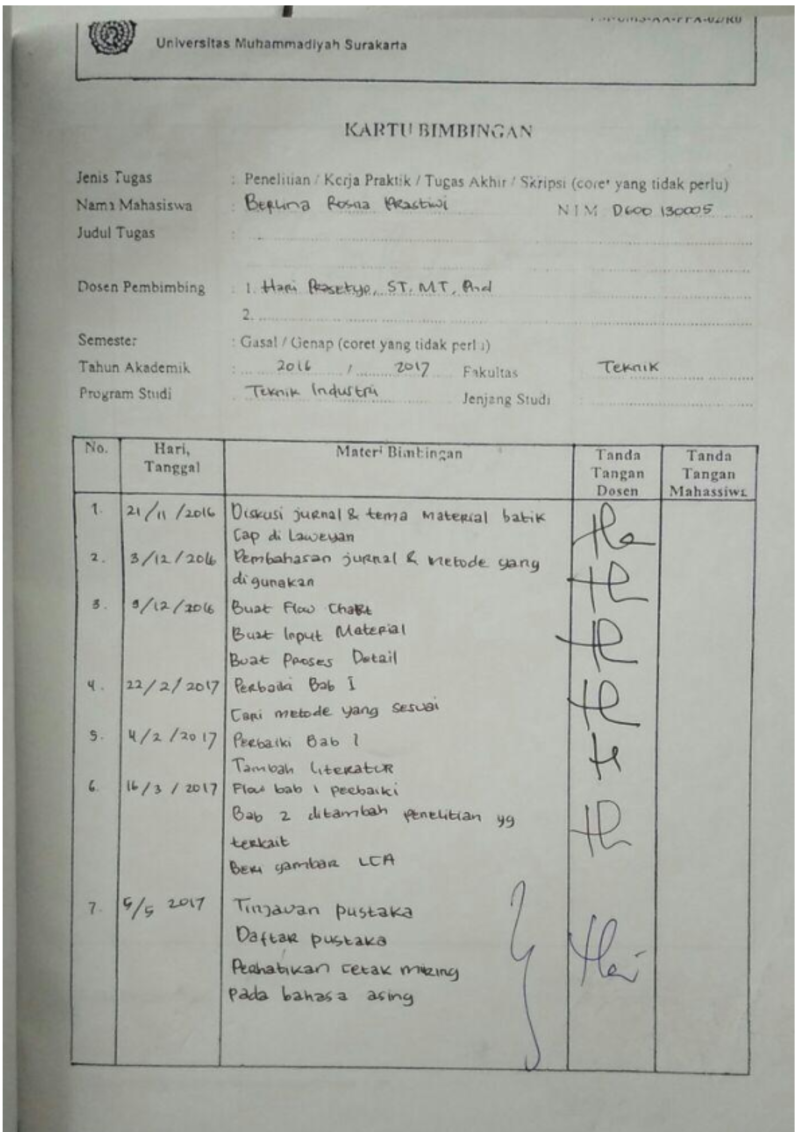 FM-UMS-AA-PPA-02/R0
Universitas Muhammadiyah Surakarta
KARTU BIMBINGAN
Jenis Tugas : Penelitian / Kerja Praktik / Tugas Akhir / Skripsi (coret yang tidak perlu)
Nama Mahasiswa : Berlina Rosna Prastiwi NIM D600 130005
Judul Tugas :
Dosen Pembimbing : 1. Hari Prasetyo, ST, MT, Phd
2.
Semester : Gasal / Genap (coret yang tidak perlu)
Tahun Akademik : 2016 / 2017 Fakultas : Teknik
Program Studi : Teknik Industri Jenjang Studi :
No. Hari, Tanggal Materi Bimbingan Tanda Tangan Dosen Tanda Tangan Mahassiwa
1. 21/11/2016 Diskusi jurnal & tema material batik
Cap di Laweyan
2. 3/12/2016 Pembahasan jurnal & metode yang
digunakan
3. 9/12/2016 Buat Flow Chart
Buat Input Material
Buat Proses Detail
4. 22/2/2017 Perbaiki Bab I
Cari metode yang sesuai
5. 4/2/2017 Perbaiki Bab 1
Tambah literatur
6. 16/3/2017 Flow bab 1 perbaiki
Bab 2 ditambah penelitian yg
terkait
Beri gambar LCA
7. 5/5 2017 Tinjauan pustaka
Daftar pustaka
Perhatikan cetak miring
pada bahasa asing